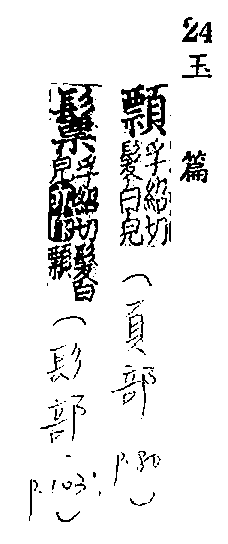 24 玉篇
顠 孚紹切
髮白皃
(頁部 p.80)
孚紹切髮白
皃 顠
(髟部 p.103)